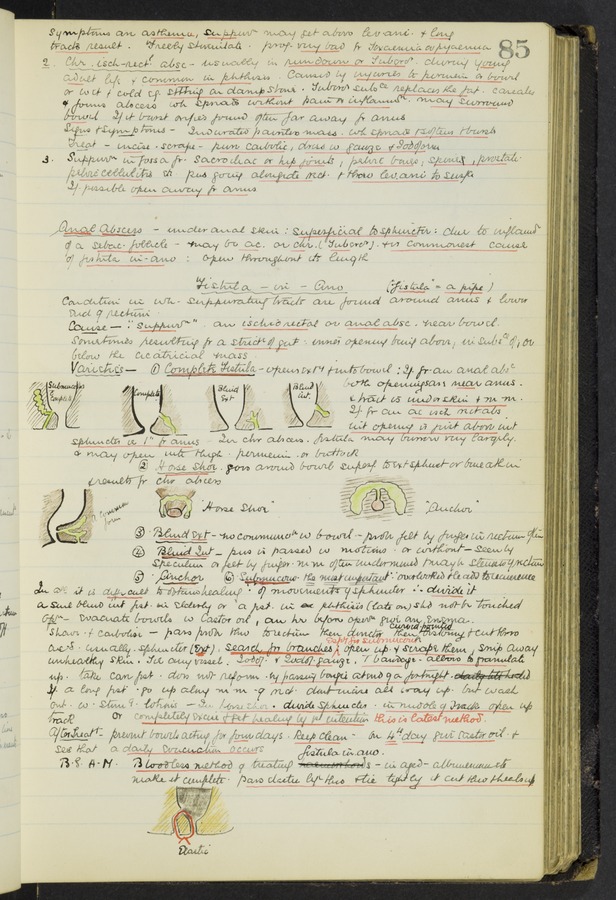 85
Symptoms are asthenia, Suppurn may get above lev ani. & long
tracts result. Freely stimulate. prog. very bad fr Toxaemia or pyaemia
2. Chr. isch-rectl absc - usually in rundown or Tuberc. during young
adult life & common in phthisis. Caused by injuries to perineum or bowel
or wet & cold eg sitting on damp stone. Tuberc subce replaces the fat. caseates
& forms abscess wh spreads without pain or inflammn. may surround
bowel If it burst orifice found often far away fr anus
Signs & symptoms - Indurated painless mass. wh spreads & softens & bursts
Treat - incise. scrape - pure carbolic, dress w gauze & Iodoform
3. Suppurn in fossa fr. Sacro iliac or hip joints, pelvic bones, spine, prostate
pelvic cellulitis pus going alongside rect. & thro lev ani to surface
If possible open away fr anus
Anal Abscess - under anal skin: superficial to sphincter: due to inflamn
of a sebac. follicle - may be ac. or chr. (Tuberc). & is commonest cause
of fistula in-ano: open throughout its length
Fistula - in - Ano. ("fistula" = a pipe)
Condition in wh. suppurating tracts are found around anus & lower
end of rectum
Cause - "suppurn" an ischio rectal or anal absc. near bowel.
Sometimes resulting fr a strict of gut: inner opening being above, in subce of, or
below the cicatricial mass
Varieties - ① Complete Fistula - opens extl & into bowel: If fr an anal absc
both openings are near anus.
& tract is under skin & m.m.
If fr an ac isch rect abs
int opening is just above int
Submucous
Complete
Blind Ext
Blind Int.
sphincter ie 1" fr anus - In chr abscess. fistula may burrow very largely.
& may open into thigh. perineum. or buttock
② Horse Shoe. goes around bowel superf to ext sphinct or beneath in
& results fr chr abscess
common form
"Horse Shoe"
"Anchor"
③ Blind Ext - no communicn w bowel - prob felt by finger in rectum
④ Blind Int - pus is passed w motions. or without - seen by
Speculum or felt by finger. m m often undermined
⑤ Anchor ⑥ Submucous the most important: overlooked & leads to recurrence
In all it is difficult to obtain healing: of movements of sphincter ∴ divide it
a same blind int fist. in elderly or a pst. in phthisis (late on) shd not be touched
Opn - Evacuate bowels w Castor oil, an hr before opern give an Enema.
Shave & carbolise - pass prob thro to rectum then director then curved pointed bistoury & cut thro
esp for submucous
usually sphincter (Ext). search for branches, open up & scrape them, snip away
unhealthy skin. Tie any vessel. Iodof. & Iodof gauze. T bandage. allow to granulate
up. take care fist. does not reform. by passing bougie at end of a fortnight
If a long fist. go up along m m g rect. dont incise all way up. but wash
out. w. stim g. lotions - In horse shoe. divide sphincter. in middle of tracks open up
track or completely excise & get healing by 1st intention this is latest method.
After treatt - prevent bowels acting for four days. Keep clean - on 4th day give castor oil. &
see that a daily evacuation occurs
fistula in ano.
B.S.A.M. Bloodless method of treating haemorrhoids - in aged - albuminurics etc
make it complete. pass elastic ligre thro & tie tightly it cut thro & heals up
Elastic